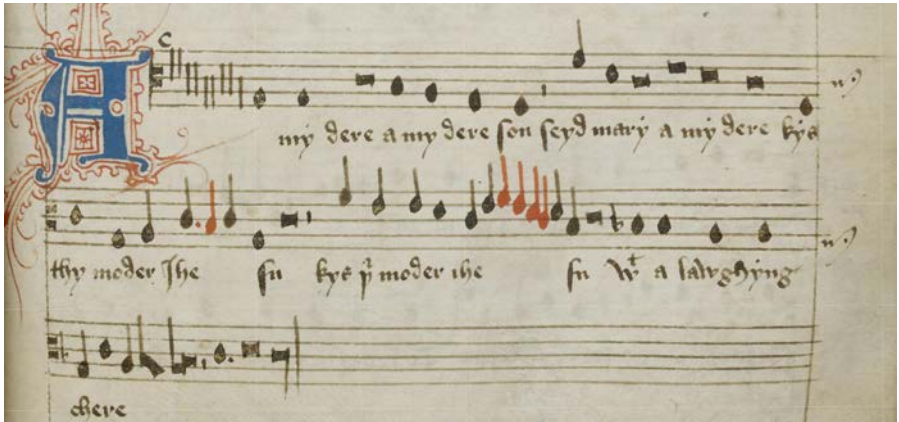 A my dere a my dere son seyd mary a my dere kys
thy moder Jhesu kys þi moder ihesu wt a lawghyng
chere